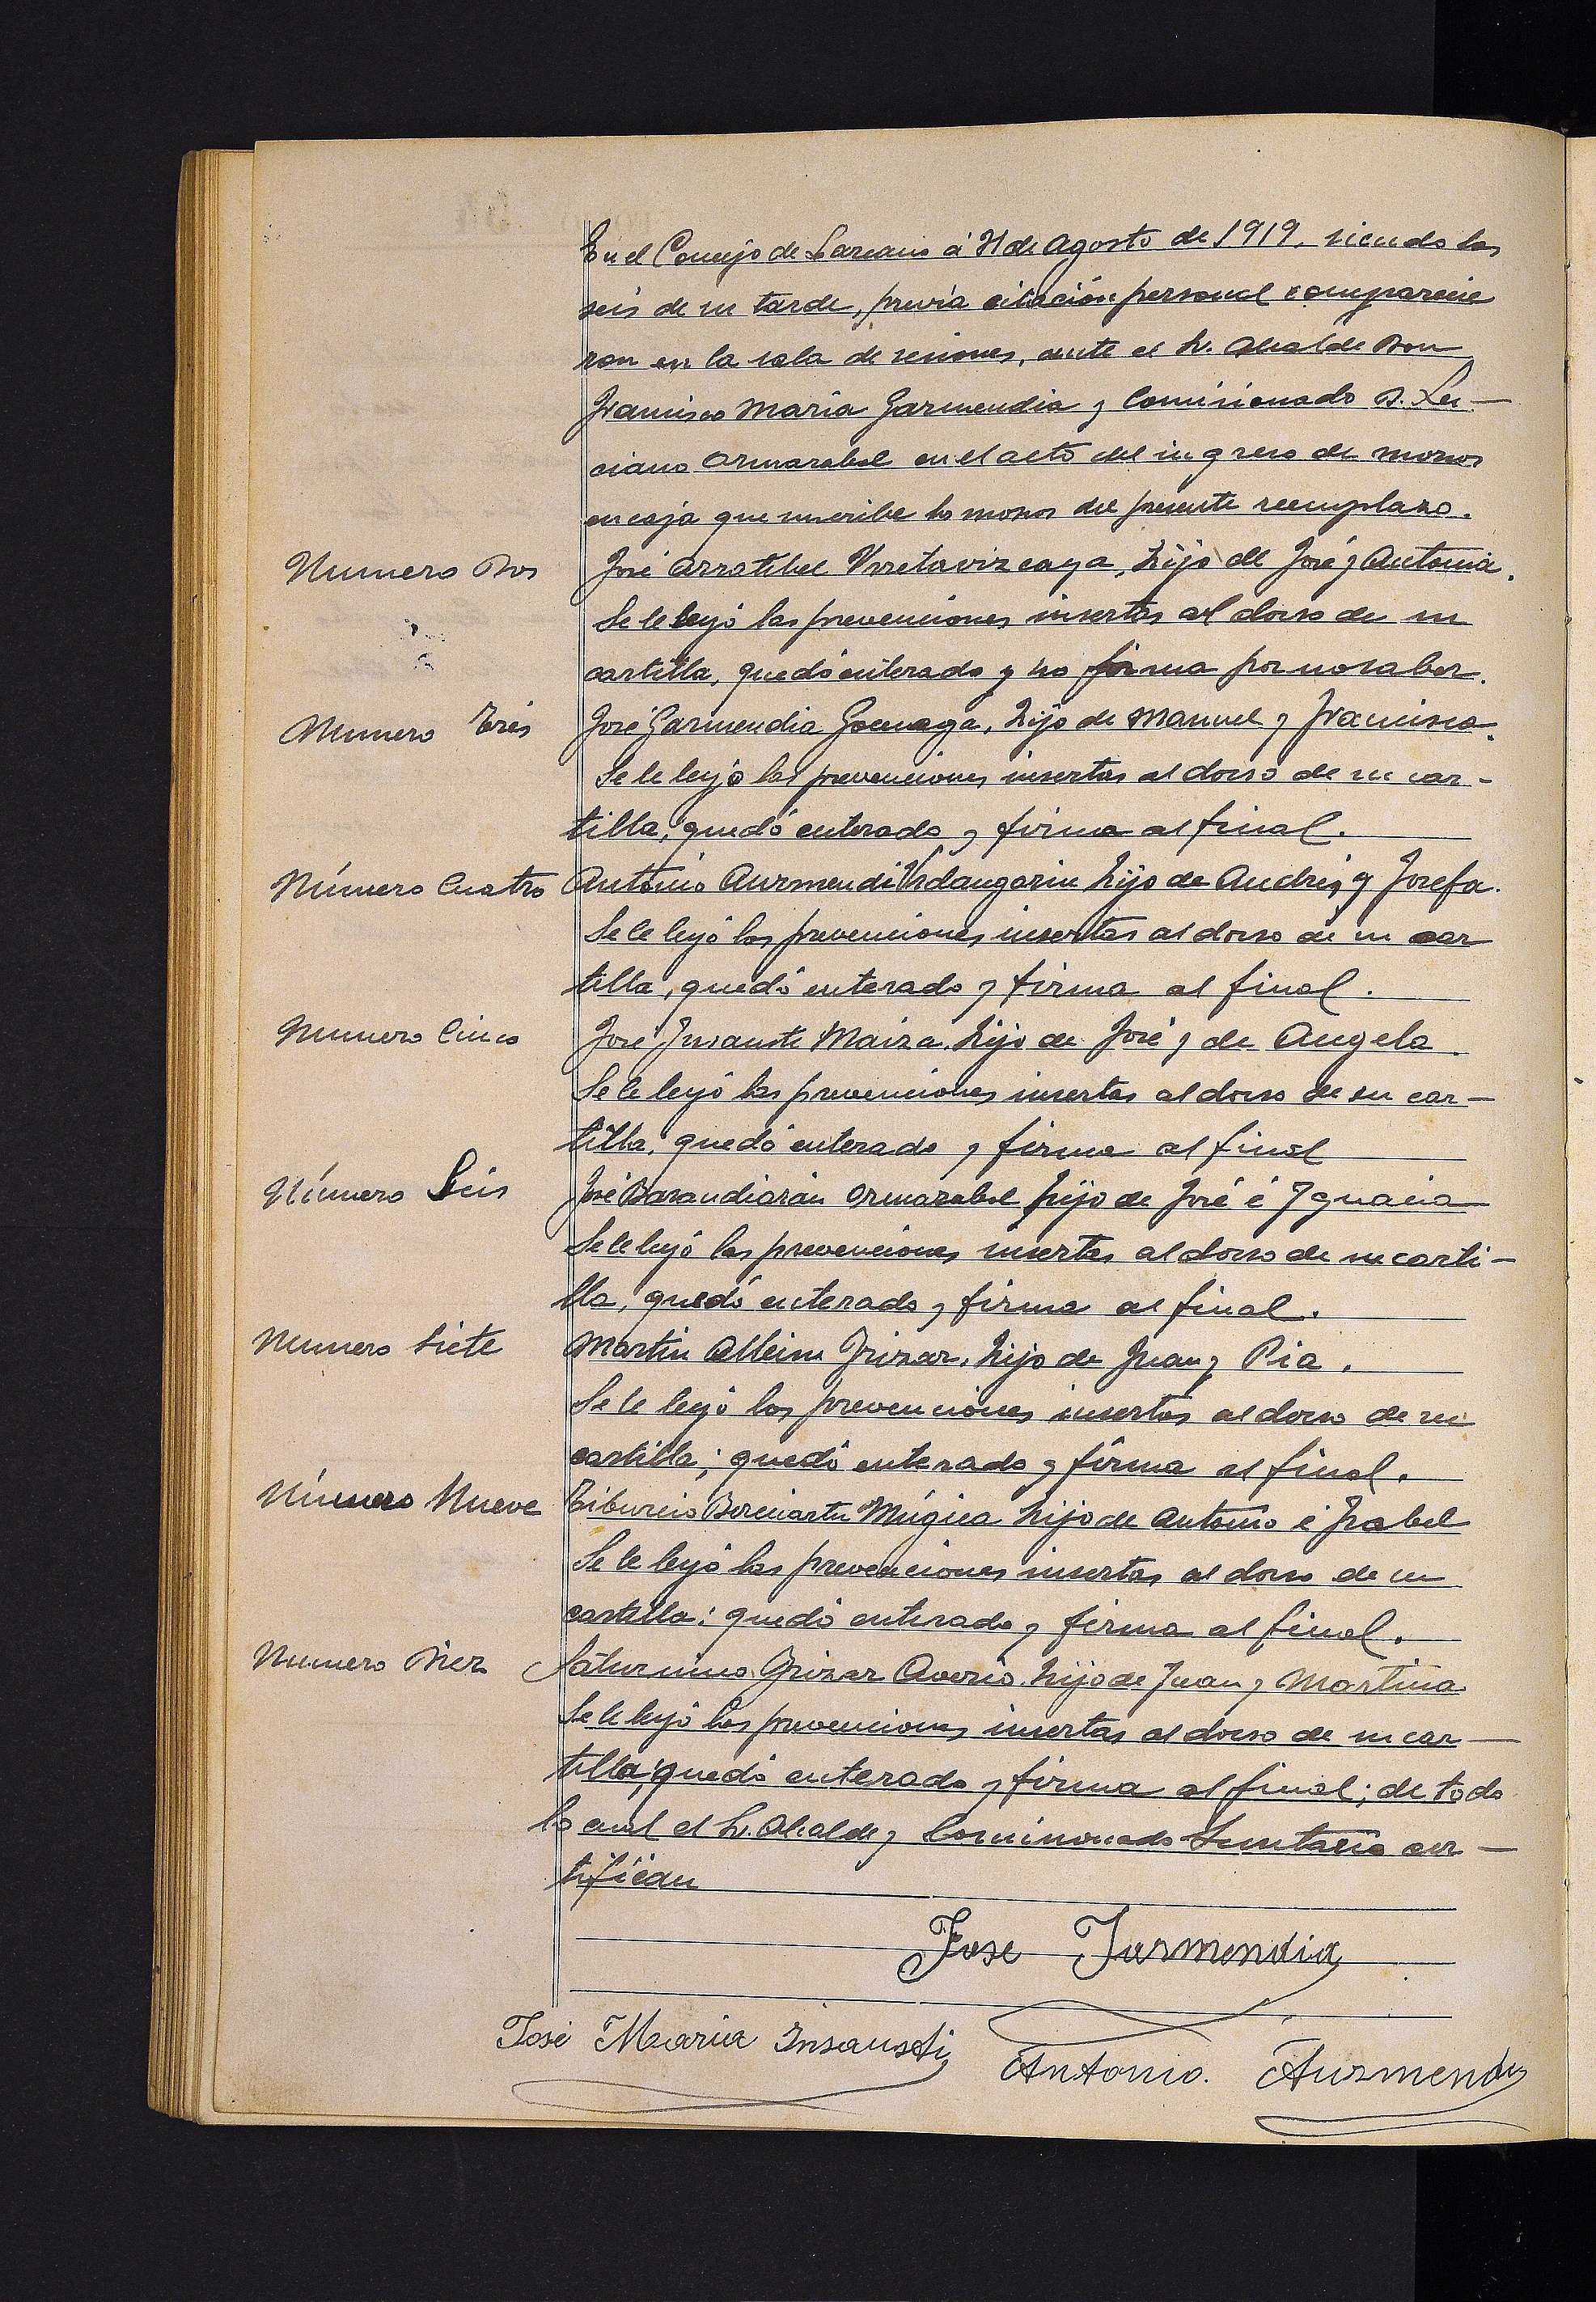 En el Concejo de Lazcano á 31 de Agosto de 1919, siendo las
seis de su tarde, previa citación personal comparecie
ron en la sala de sesiones, ante el Sr. Alcalde Don
Francisco María Garmendia y Comisionado D. Lu-
ciano Ormazabal en el acto del ingreso de mozos
en caja que suscribe los mozos del presente reemplazo.
Numero Dos José Arratibel Urretavizcaya, hijo de José y Antonia.
Se le leyó las prevenciones insertas al dorso de su
cartilla, quedó enterado y no firma por no saber.
Numero Trés José Garmendia Goenaga, hijo de Manuel y Francisca.
Se le leyó las prevenciones insertas al dorso de su car-
tilla, quedó enterado y firma al final.
Número Cuatro Antonio Aurmendi Urdangarin hijo de Andrés y Josefa.
Se le leyó las prevenciones insertas al dorso de su car
tilla, quedó enterado y firma al final.
Numero Cinco José Insausti Maiza hijo de José y de Angela
Se le leyó las prevenciones insertas al dorso de su car-
tilla, quedó enterado y firma al final
Número Seis José Barandiarán Ormazabal hijo de José é Ignacia
Se le leyó las prevenciones insertas al dorso de su carti-
lla, quedó enterado y firma al final.
Numero Siete Martin Albisu Irizar, hijo de Juan y Pia.
Se le leyó las prevenciones insertas al dorso de su
cartilla; quedó enterado y firma al final.
Número Nueve Tiburcio Bereciartu Múgica hijo de Antonio é Isabel
Se le leyó las prevenciones insertas al dorso de su
cartilla: quedó enterado y firma al final.
Numero Diez Saturnino Irizar hijo de Juan y Martina
Se le leyó las prevenciones insertas al dorso de su car-
tilla; quedó enterado y firma al final; de todo
lo cual el Sr. Alcalde y Comisionado Secretario cer-
tifican
Jose Jarmendia
José Maria Insausti
Antonio. Aurmendi